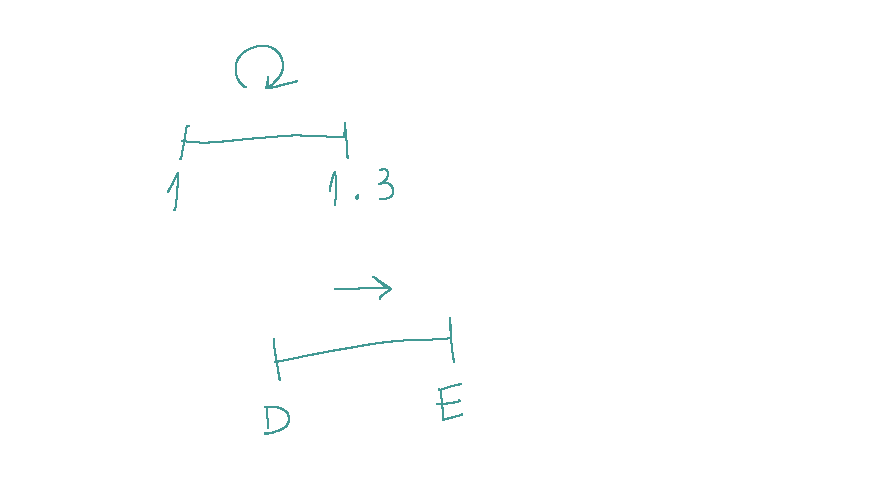 1 1.3
D E